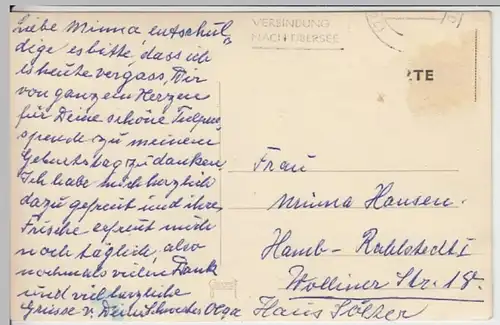 Liebe Minna entschul=
dige es bitte, dass ich
es heute vergass, Dir
von ganzem Herzen
für Deine schöne Tulpen
spende zu meinem
Geburtstag zu danken
Ich habe mich herzlich
dazu gefreut und ihre
Frische erfreut mich
noch täglich, also
nochmals vielen Dank
und viel herzliche
Grüsse v. Dein Schwester Olga
VERBINDUNG
NACH ÜBERSEE
RTE
Frau
Minna Hansen.
Hamb- Rahlstedt 1
Wolliner Str. 18.
Haus Sölter